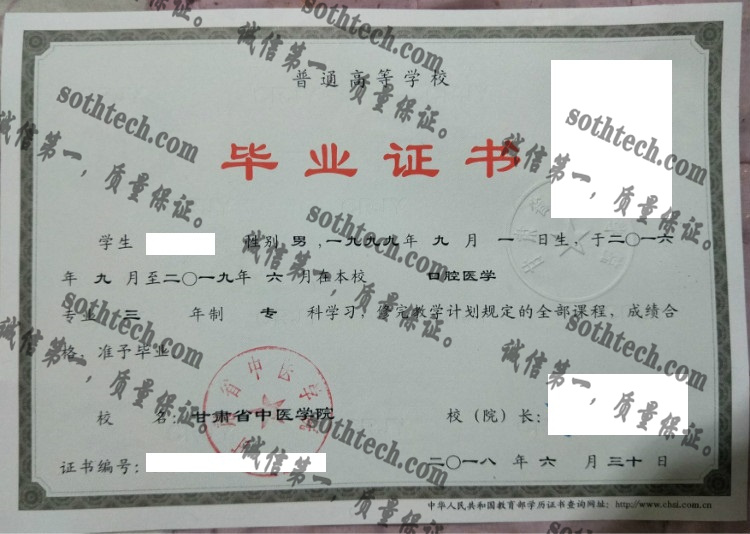 普通高等学校
毕业证书
学生 性别 男，一九九九年 九 月 一 日生，于二〇一六
年 九 月至二〇一九年 六 月在本校 口腔医学
专业 三 年制 专 科学习，修完教学计划规定的全部课程，成绩合
格，准予毕业
校 名：甘肃省中医学院 校（院）长：
证书编号： 二〇一八 年 六 月 三十 日
中华人民共和国教育部学历证书查询网址：http://www.chsi.com.cn
sothtech.com
诚信第一，质量保证。
sothtech.com
诚信第一，质量保证。
sothtech.com
诚信第一，质量保证。
sothtech.com
诚信第一，质量保证。
sothtech.com
诚信第一，质量保证。
sothtech.com
诚信第一，质量保证。
sothtech.com
诚信第一，质量保证。